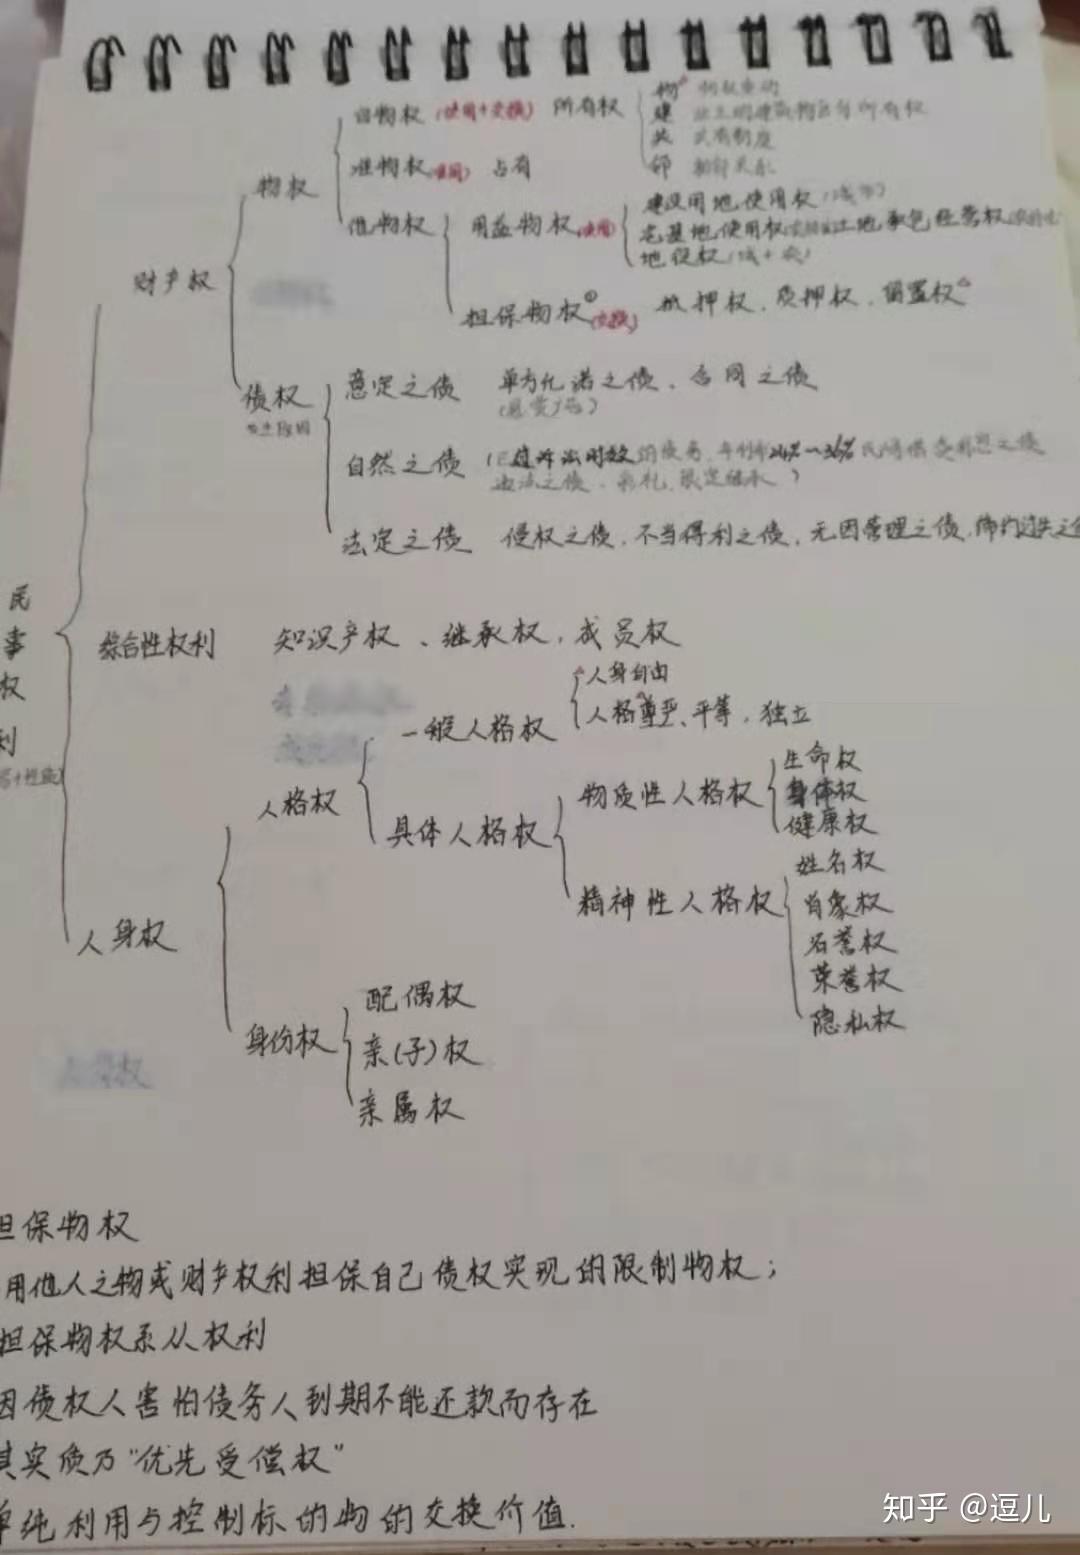 自物权 (使用+交换) 所有权
物 物权变动
建
共 共有制度
邻 相邻关系
物权
准物权 占有
他物权
用益物权 (使用)
建设用地使用权
宅基地使用权 土地承包经营权
地役权
担保物权 (交换) 抵押权、质押权、留置权
财产权
债权
意定之债 单方允诺之债、合同之债
自然之债 诉讼时效 24%~36%
法定之债 侵权之债、不当得利之债、无因管理之债、缔约过失之
民
事
权
利
综合性权利 知识产权、继承权、成员权
人身自由
一般人格权
人格尊严、平等、独立
人格权
具体人格权
物质性人格权
生命权
身体权
健康权
精神性人格权
姓名权
肖象权
名誉权
荣誉权
隐私权
人身权
身份权
配偶权
亲(子)权
亲属权
担保物权
用他人之物或财产权利担保自己债权实现的限制物权；
担保物权系从权利
因债权人害怕债务人到期不能还款而存在
其实质乃“优先受偿权”
单纯利用与控制标的物的交换价值.
知乎 @逗儿